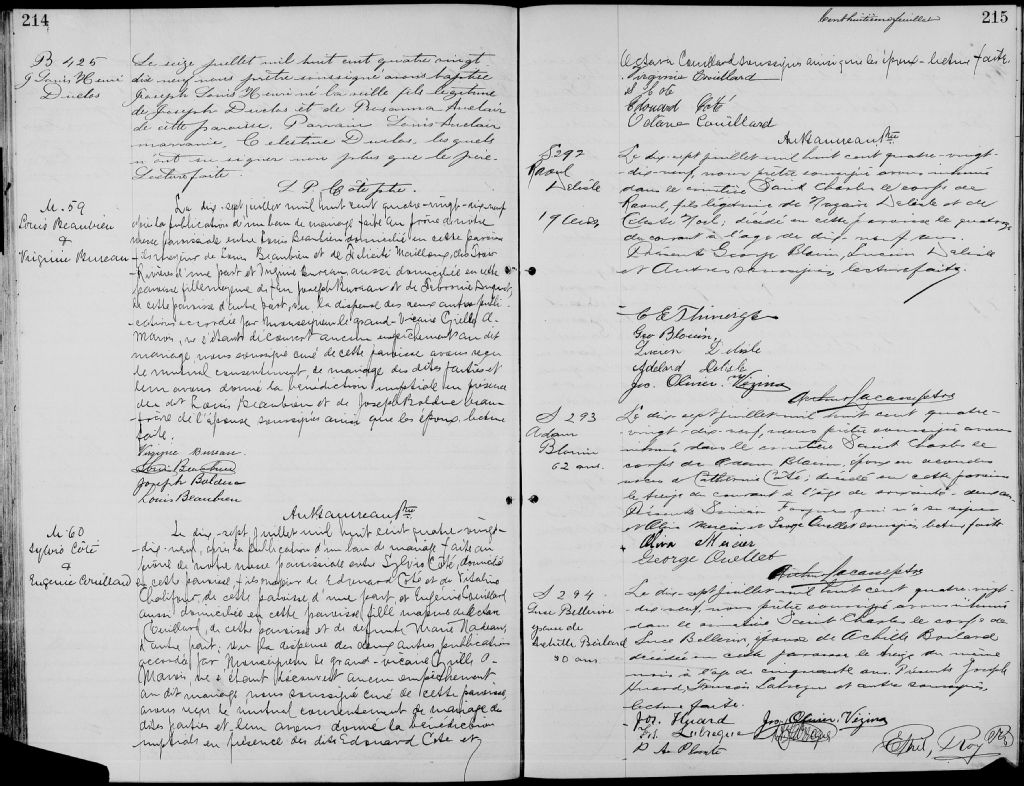 214
B 425
J Louis Henri
Duclos
Le seize juillet mil huit cent quatre vingt
dix neuf nous prêtre soussigné avons baptisé
Joseph Louis Henri né la veille fils légitime
de Joseph Duclos et de Rosanna Auclair
de cette paroisse. Parrain Louis Auclair
marraine, Célestine Duclos, lesquels
n'ont su signer non plus que le père
Lecture faite.
L. P. Côté ptre.
M. 59
Louis Beaubien
&
Virginie Bureau
Le dix-sept juillet mil huit cent quatre-vingt-dix-neuf
vu la publication d'un ban de mariage faite au prône de notre
messe paroissiale entre Louis Beaubien domicilié en cette paroisse
fils majeur de Louis Beaubien et de Mailloux, des Trois
Rivières d'une part et Virginie Bureau, aussi domiciliée en cette
paroisse fille majeure de feu Joseph Bureau et de
de cette paroisse d'autre part, vu la dispense des deux autres publi-
cations accordée par Monseigneur le grand-vicaire Cyrille A-
Marois, ne s'étant découvert aucun empêchement au dit
mariage, nous soussigné curé de cette paroisse avons reçu
le mutuel consentement, de mariage des dites parties et
leur avons donné la bénédiction nuptiale en présence
du dit Louis Beaubien et de Joseph Bolduc beau-
frère de l'épouse soussignés ainsi que les époux. lecture
faite.
Virginie Bureau.
Louis Beaubien
Joseph Bolduc
Louis Beaubien
Ptre
M. 60
Sylvio Côté
&
Eugénie Couillard
Le dix-sept juillet mil huit cent quatre vingt-
dix-neuf, après la publication d'un ban de mariage faite au
prône de notre messe paroissiale entre Sylvio Côté, domicilié
en cette paroisse fils majeur de Edouard Côté et de Vitaline
Chalifour, de cette paroisse d'une part et Eugénie Couillard
aussi domiciliée en cette paroisse fille majeure de
Couillard, de cette paroisse et de défunte Marie Nadeau,
d'autre part; vu la dispense des deux autres publications
accordée par Monseigneur le grand-vicaire Cyrille A-
Marois, ne s'étant découvert aucun empêchement
au dit mariage nous soussigné curé de cette paroisse,
avons reçu le mutuel consentement de mariage des
dites parties et leur avons donné la bénédiction
nuptiale en présence des dits Edouard Côté et
Cent huitième feuillet
215
Octave Couillard soussignés ainsi que les époux - lecture faite.
Virginie Couillard
S Coté
Edouard Coté
Octave Couillard
Ptre
S 292
Raoul
Delisle
19 ans
Le dix-sept juillet mil huit cent quatre-vingt-
dix-neuf, nous prêtre soussigné avons inhumé
dans le cimetière Saint Charles le corps de
Raoul, fils légitime de Nazaire Delisle et de
Noel, décédé en cette paroisse le quatorze
du courant à l'age de dix-neuf ans.
Présents George Blouin, Lucien Delisle
et Autres soussignés, lecture faite.
Geo Blouin,
Lucien Delisle
Adelard Delisle
Jos. Olivier Vézina
Arthur Lacasse ptre
S 293
Adam
Blouin
62 ans.
Le dix-sept juillet mil huit cent quatre-
vingt-dix-neuf, nous prêtre soussigné avons
inhumé dans le cimetière Saint Charles le
corps de Adam Blouin, époux en secondes
noces de Catherine Côté, décédé en cette paroisse
le treize du courant à l'âge de soixante-deux ans
Présents qui n'a su signer
et Oliva Mercier et George Ouellet soussignés, lecture faite
Oliva Mercier
George Ouellet
Arthur Lacasse ptre
S 294
Luce Bellerive
épouse de
Achille Boilard
50 ans
Le dix-sept juillet mil huit cent quatre vingt-
dix-neuf, nous prêtre soussigné avons inhumé
dans le cimetière Saint Charles le corps de
Luce Bellerive épouse de Achille Boilard
décédée en cette paroisse le treize du même
mois à l'âge de cinquante ans. Présents Joseph
Huard, François Labrèque et autres soussignés,
lecture faite.
Jos. Huard
Jos. Olivier Vézina
Labreque
Roy